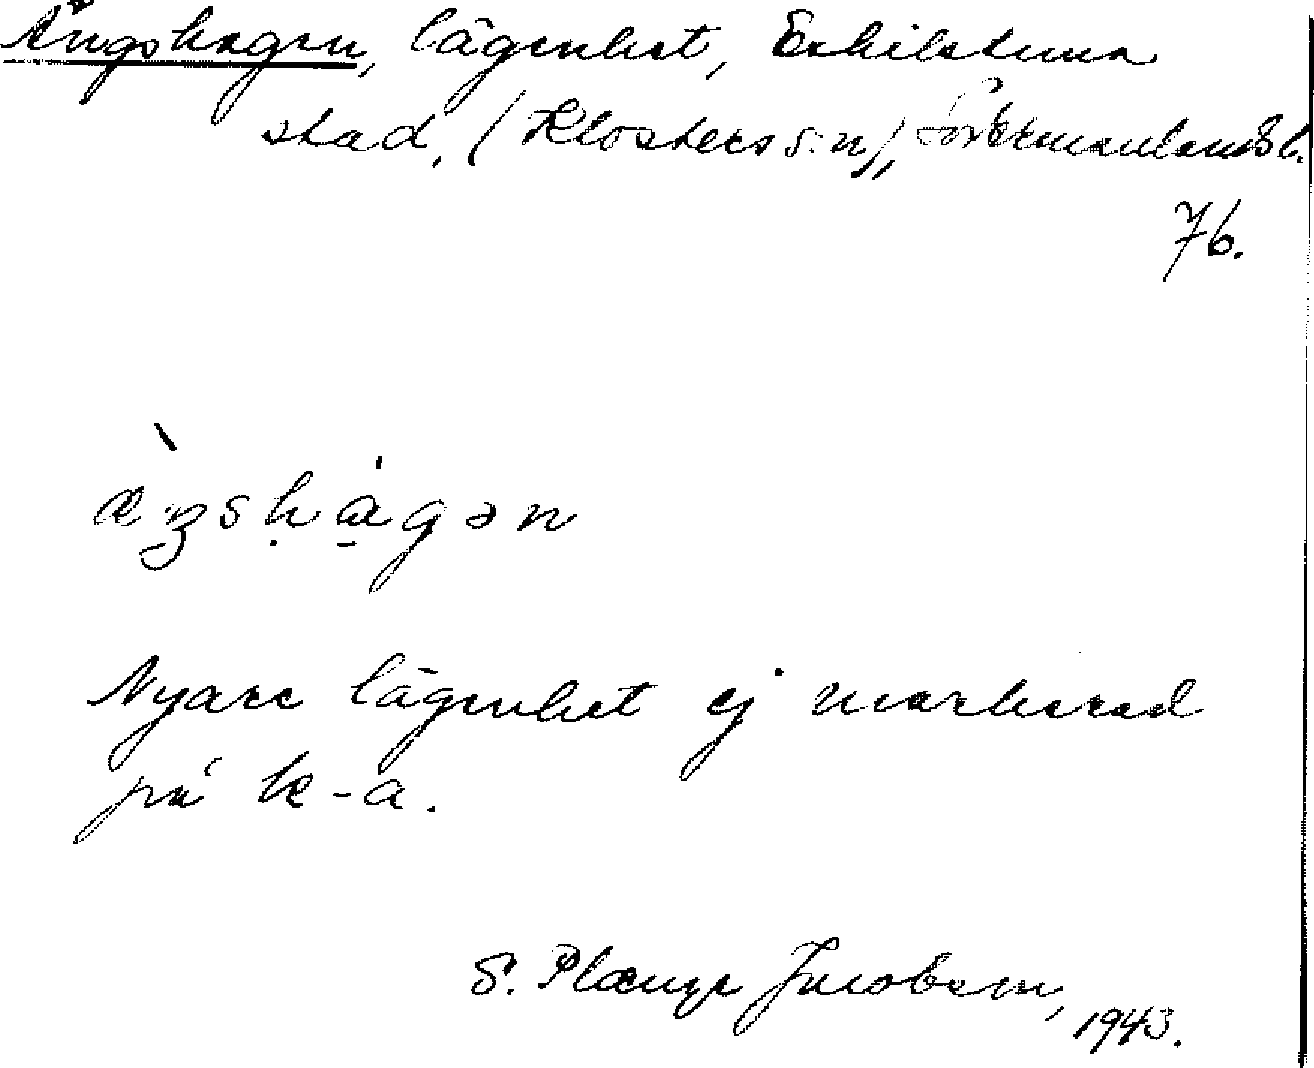 Ängshagen, lägenhet, Eskilstuna
stad, (Klosters s:n), Södermanlands l.
76.
æ̀ŋshàgən
Nyare lägenhet ej markerad
på k-a.
S. Jacobsen, 1943.